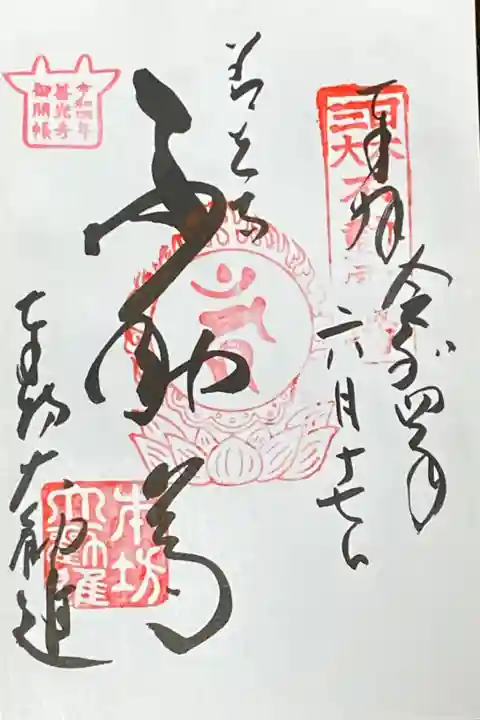 奉拝
令和四年
六月十七日
善光寺
不動尊
本坊大勧進
令和四年
善光寺
御開帳
日本
三大
本坊
大勧進